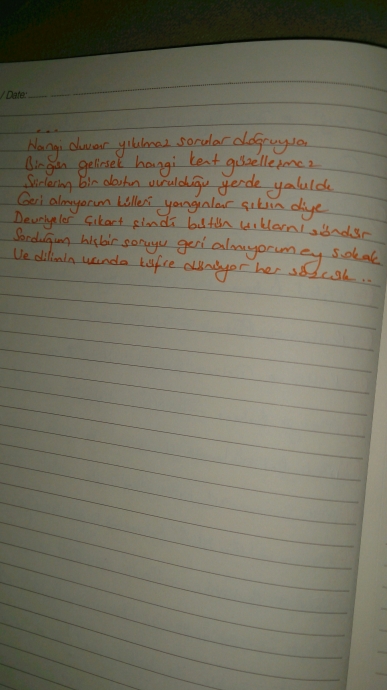 / Date:
...
Hangi duvar yıkılmaz sorular doğruysa
Birgün gelirsek hangi kent güzelleşmez
Şiirlerim bir dostun vurulduğu yerde yakıldı
Geri almıyorum külleri yangınlar çıksın diye
Devriyeler çıkart şimdi bütün ışıklarını söndür
Sorduğum hiçbir soruyu geri almıyorum ey sokak
Ve dilimin ucunda küfre dönüyor her sözcük..